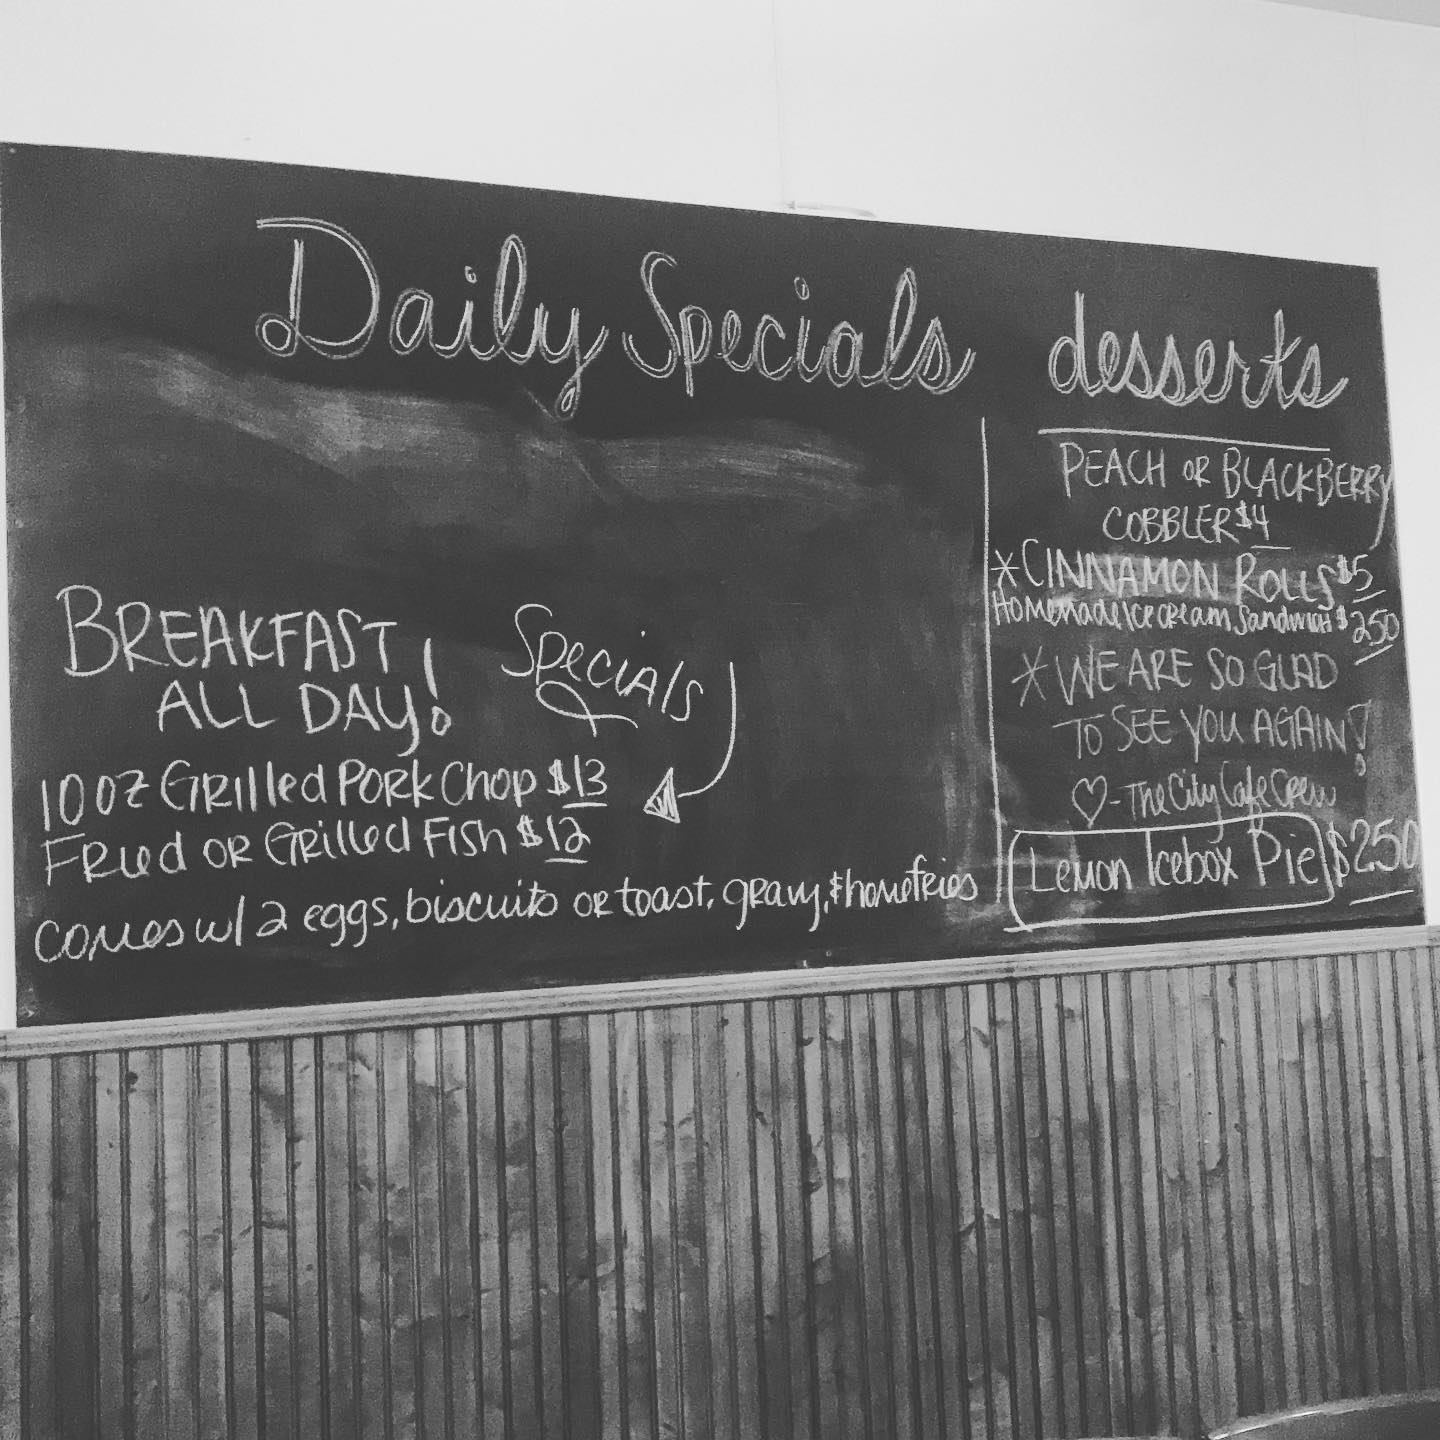 Daily Specials
BREAKFAST
ALL DAY!
Specials
10 oz Grilled Pork Chop $13
Fried or Grilled Fish $12
comes w/ 2 eggs, biscuits or toast, gravy, & homefries
desserts
PEACH OR BLACKBERRY
COBBLER $4
*CINNAMON ROLLS $5
Homemade Ice cream Sandwich $250
*WE ARE SO GLAD
TO SEE YOU AGAIN!
♡-The City Cafe Crew
Lemon Icebox Pie $250